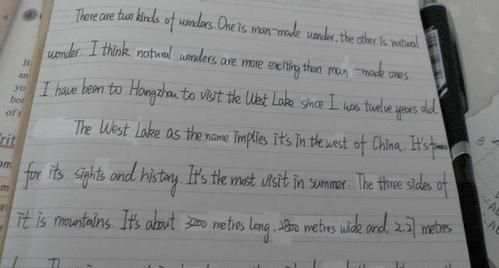 There are two kinds of wonders. One is man-made wonder, the other is natural
wonder. I think natural wonders are more exciting than man-made ones
I have been to Hangzhou to visit the West Lake since I was twelve years old.
The West Lake as the name implies it's in the west of China. It's
for its sights and history. It's the most visit in summer. The three sides of
it is mountains. It's about 3200 metres long, 2800 metres wide and 2.27 metres